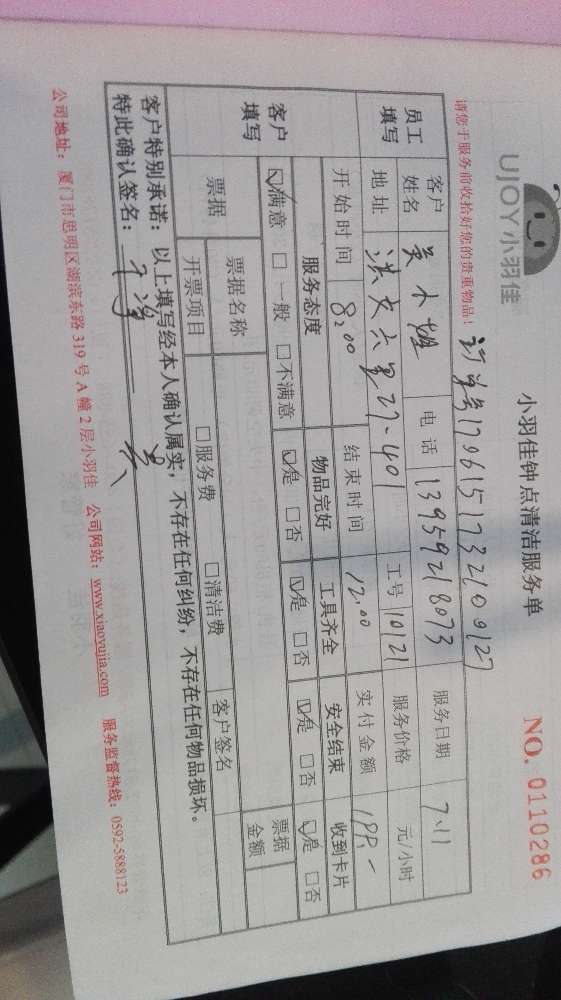 UJOY小羽佳
小羽佳钟点清洁服务单
NO. 0110286
请您于服务前收拾好您的贵重物品!
订单号1706151732100127
员工填写 客户姓名 吴小姐 电话 13959218073 服务日期 7.11
地址 洪文六里27-401 工号 10121 服务价格 元/小时
开始时间 8:00 结束时间 12.00 实付金额
客户填写 服务态度 物品完好 工具齐全 安全结束 收到卡片
☑满意 □一般 □不满意 ☑是 □否 ☑是 □否 ☑是 □否 ☑是 □否
票据 票据名称 □服务费 □清洁费 客户签名 票据金额
开票项目
客户特别承诺:以上填写经本人确认属实,不存在任何纠纷,不存在任何物品损坏。
特此确认签名:
公司地址:厦门市思明区湖滨东路319号A幢2层小羽佳 公司网站:www.xiaoyujia.com 服务监督热线:0592-5888123